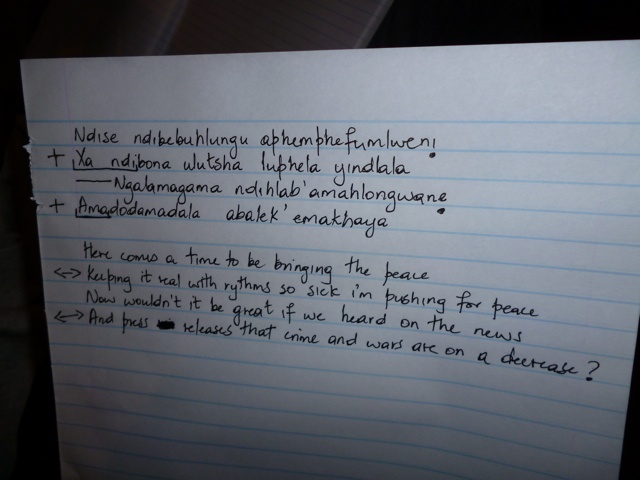 Ndise ndibebuhlungu aphemphefumlweni
+ Xa ndibona wutsha luphela yindlala
Ngalamagama ndihlab'amahlongwane
+ Amadodamadala abalek'emakhaya
Here comes a time to be bringing the peace
<-> Keeping it real with rythms so sick i'm pushing for peace
Now wouldn't it be great if we heard on the news
<-> And press releases that crime and wars are on a decrease?